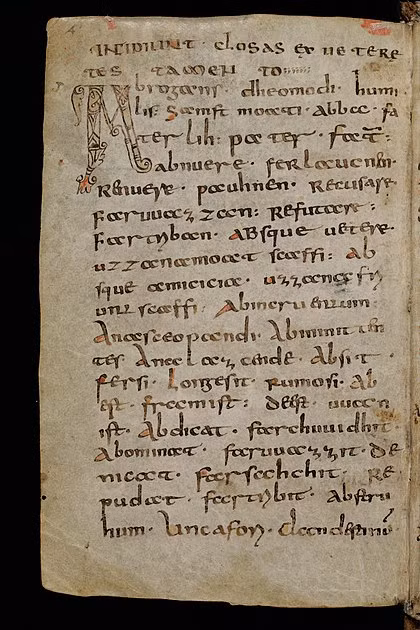 INCIPIUNT · CLOSAS EX UETERE
TES TAMEN TO
Abrogans · dheomodi · humi
lis · Samft moati · Abba · fa
ter lih: pater · fat̄
abnuere · ferlaucnen
Renuere · pauhnen · Recusare
faruuazzan: Refutare:
fartriban: ABsque uetere
uzzana moat scaffi: Ab
sque amicicia · uzzana fri
unt scaffi:
Abminit
tes Anelazende · Absit
fersi · longesit · rumosi · Ab
est · framist: deest · uuan
ist · Abdicat · farchuuidhit
Abominat · faruuazzit · De
nicat · farsahchit · Re
pudat · fartribit · Abstru
hum · Uncafori · clandestinū